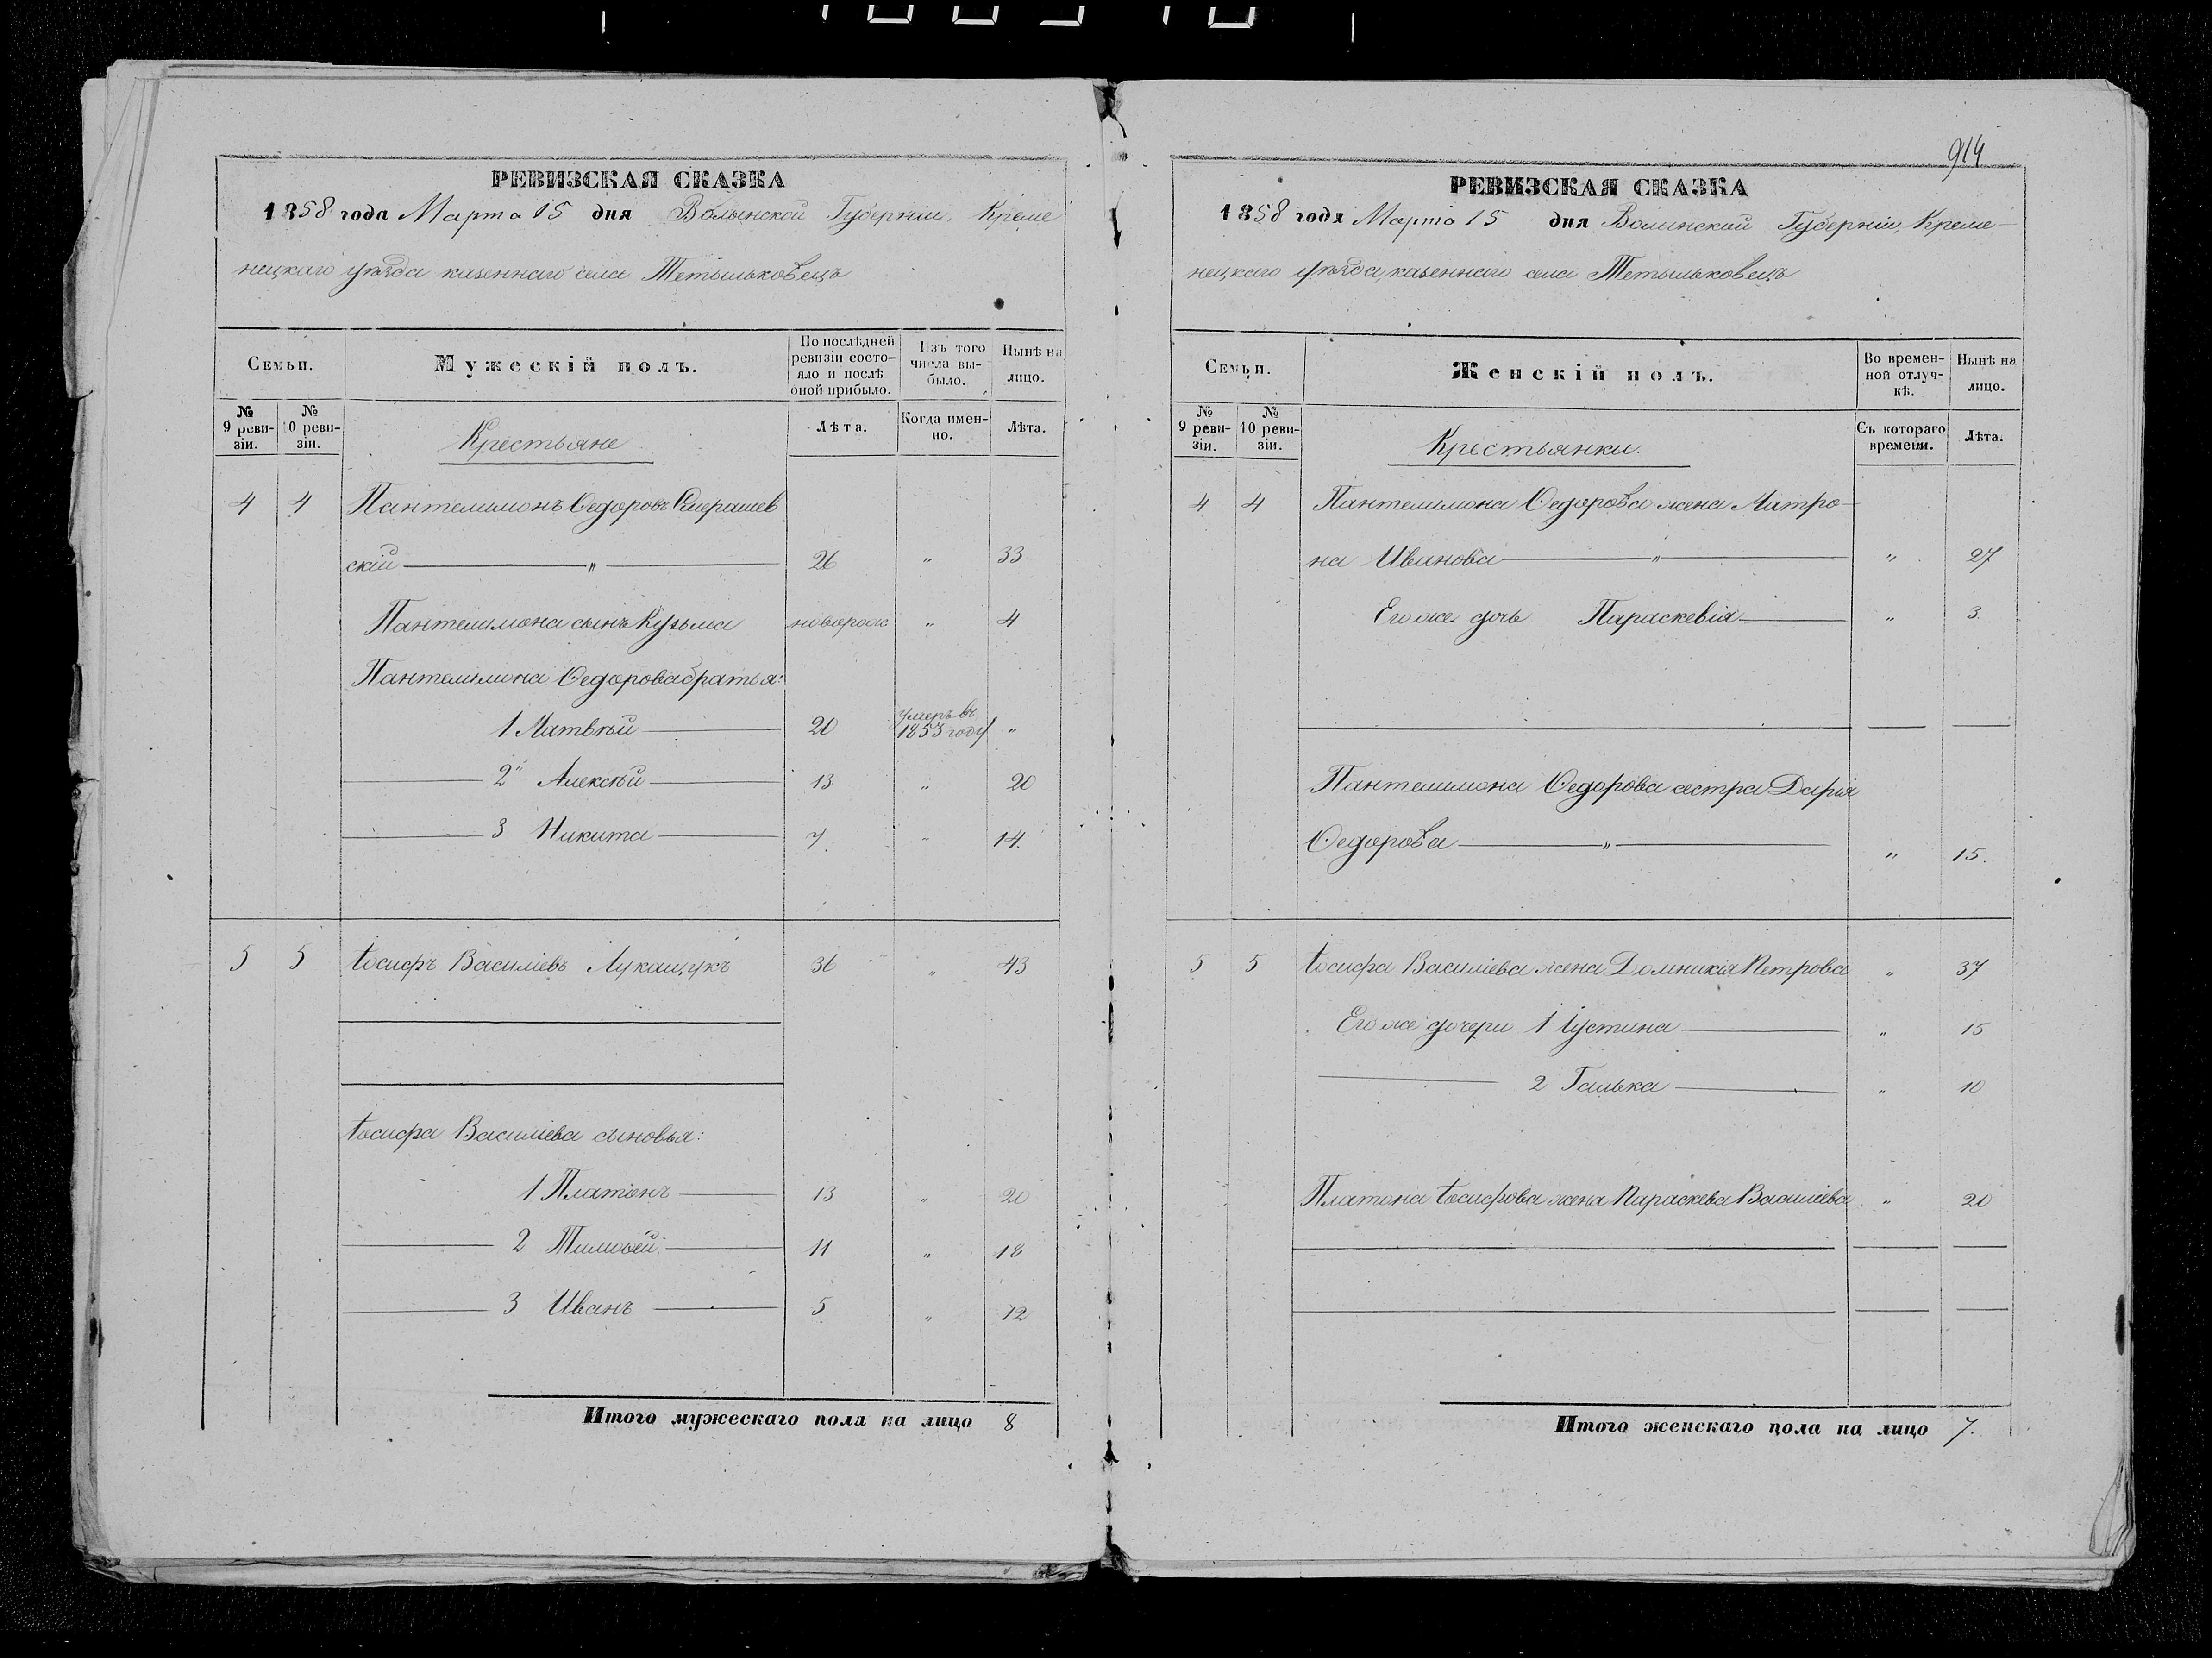 РЕВИЗСКАЯ СКАЗКА
1858 года Марта 15 дня Волынской Губерніи, Креме
нецкаго уѣзда казеннаго села Тетыльковецъ
Семьи.
Мужескій полъ.
По послѣдней ревизіи состояло и послѣ оной прибыло.
Изъ того числа выбыло.
Нынѣ на лицо.
№ 9 ревизіи.
№ 10 ревизіи.
Крестьяне
Лѣта.
Когда именно.
Лѣта.
4 4 Пантелимонъ Ѳедоровъ
скій " 26 " 33
Пантелимона сынъ Кузьма новорож " 4
Пантелимона Ѳедорова братья:
1 Матвѣй 20 умеръ въ 1853 году "
2 Алексѣй 13 " 20
3 Никита 7. " 14.
5 5 Іосифъ Василіевъ Лукащукъ 36 " 43
Іосифа Василіева сыновья:
1 Платонъ 13 " 20
2 Тимоѳей 11 " 18
3 Иванъ 5 " 12
Итого мужескаго пола на лицо 8
914
РЕВИЗСКАЯ СКАЗКА
1858 года Марта 15 дня Волынской Губерніи, Креме-
нецкаго уѣзда, казеннаго села Тетыльковецъ
Семьи.
Женскій полъ.
Во временной отлучкѣ.
Нынѣ на лицо.
№ 9 ревизіи.
№ 10 ревизіи.
Крестьянки.
Съ котораго времени.
Лѣта.
4 4 Пантелимона Ѳедорова жена Матро-
на Иванова " " 27
Его же дочь Параскевія " 3.
Пантелимона Ѳедорова сестра Дарія
Ѳедорова " " 15.
5 5 Іосифа Василіева жена Домникія Петрова " 37
Его же дочери 1 Іустина " 15
2 Галька " 10
Платона Іосифова жена Параскева Василіева " 20
Итого женскаго пола на лицо 7.